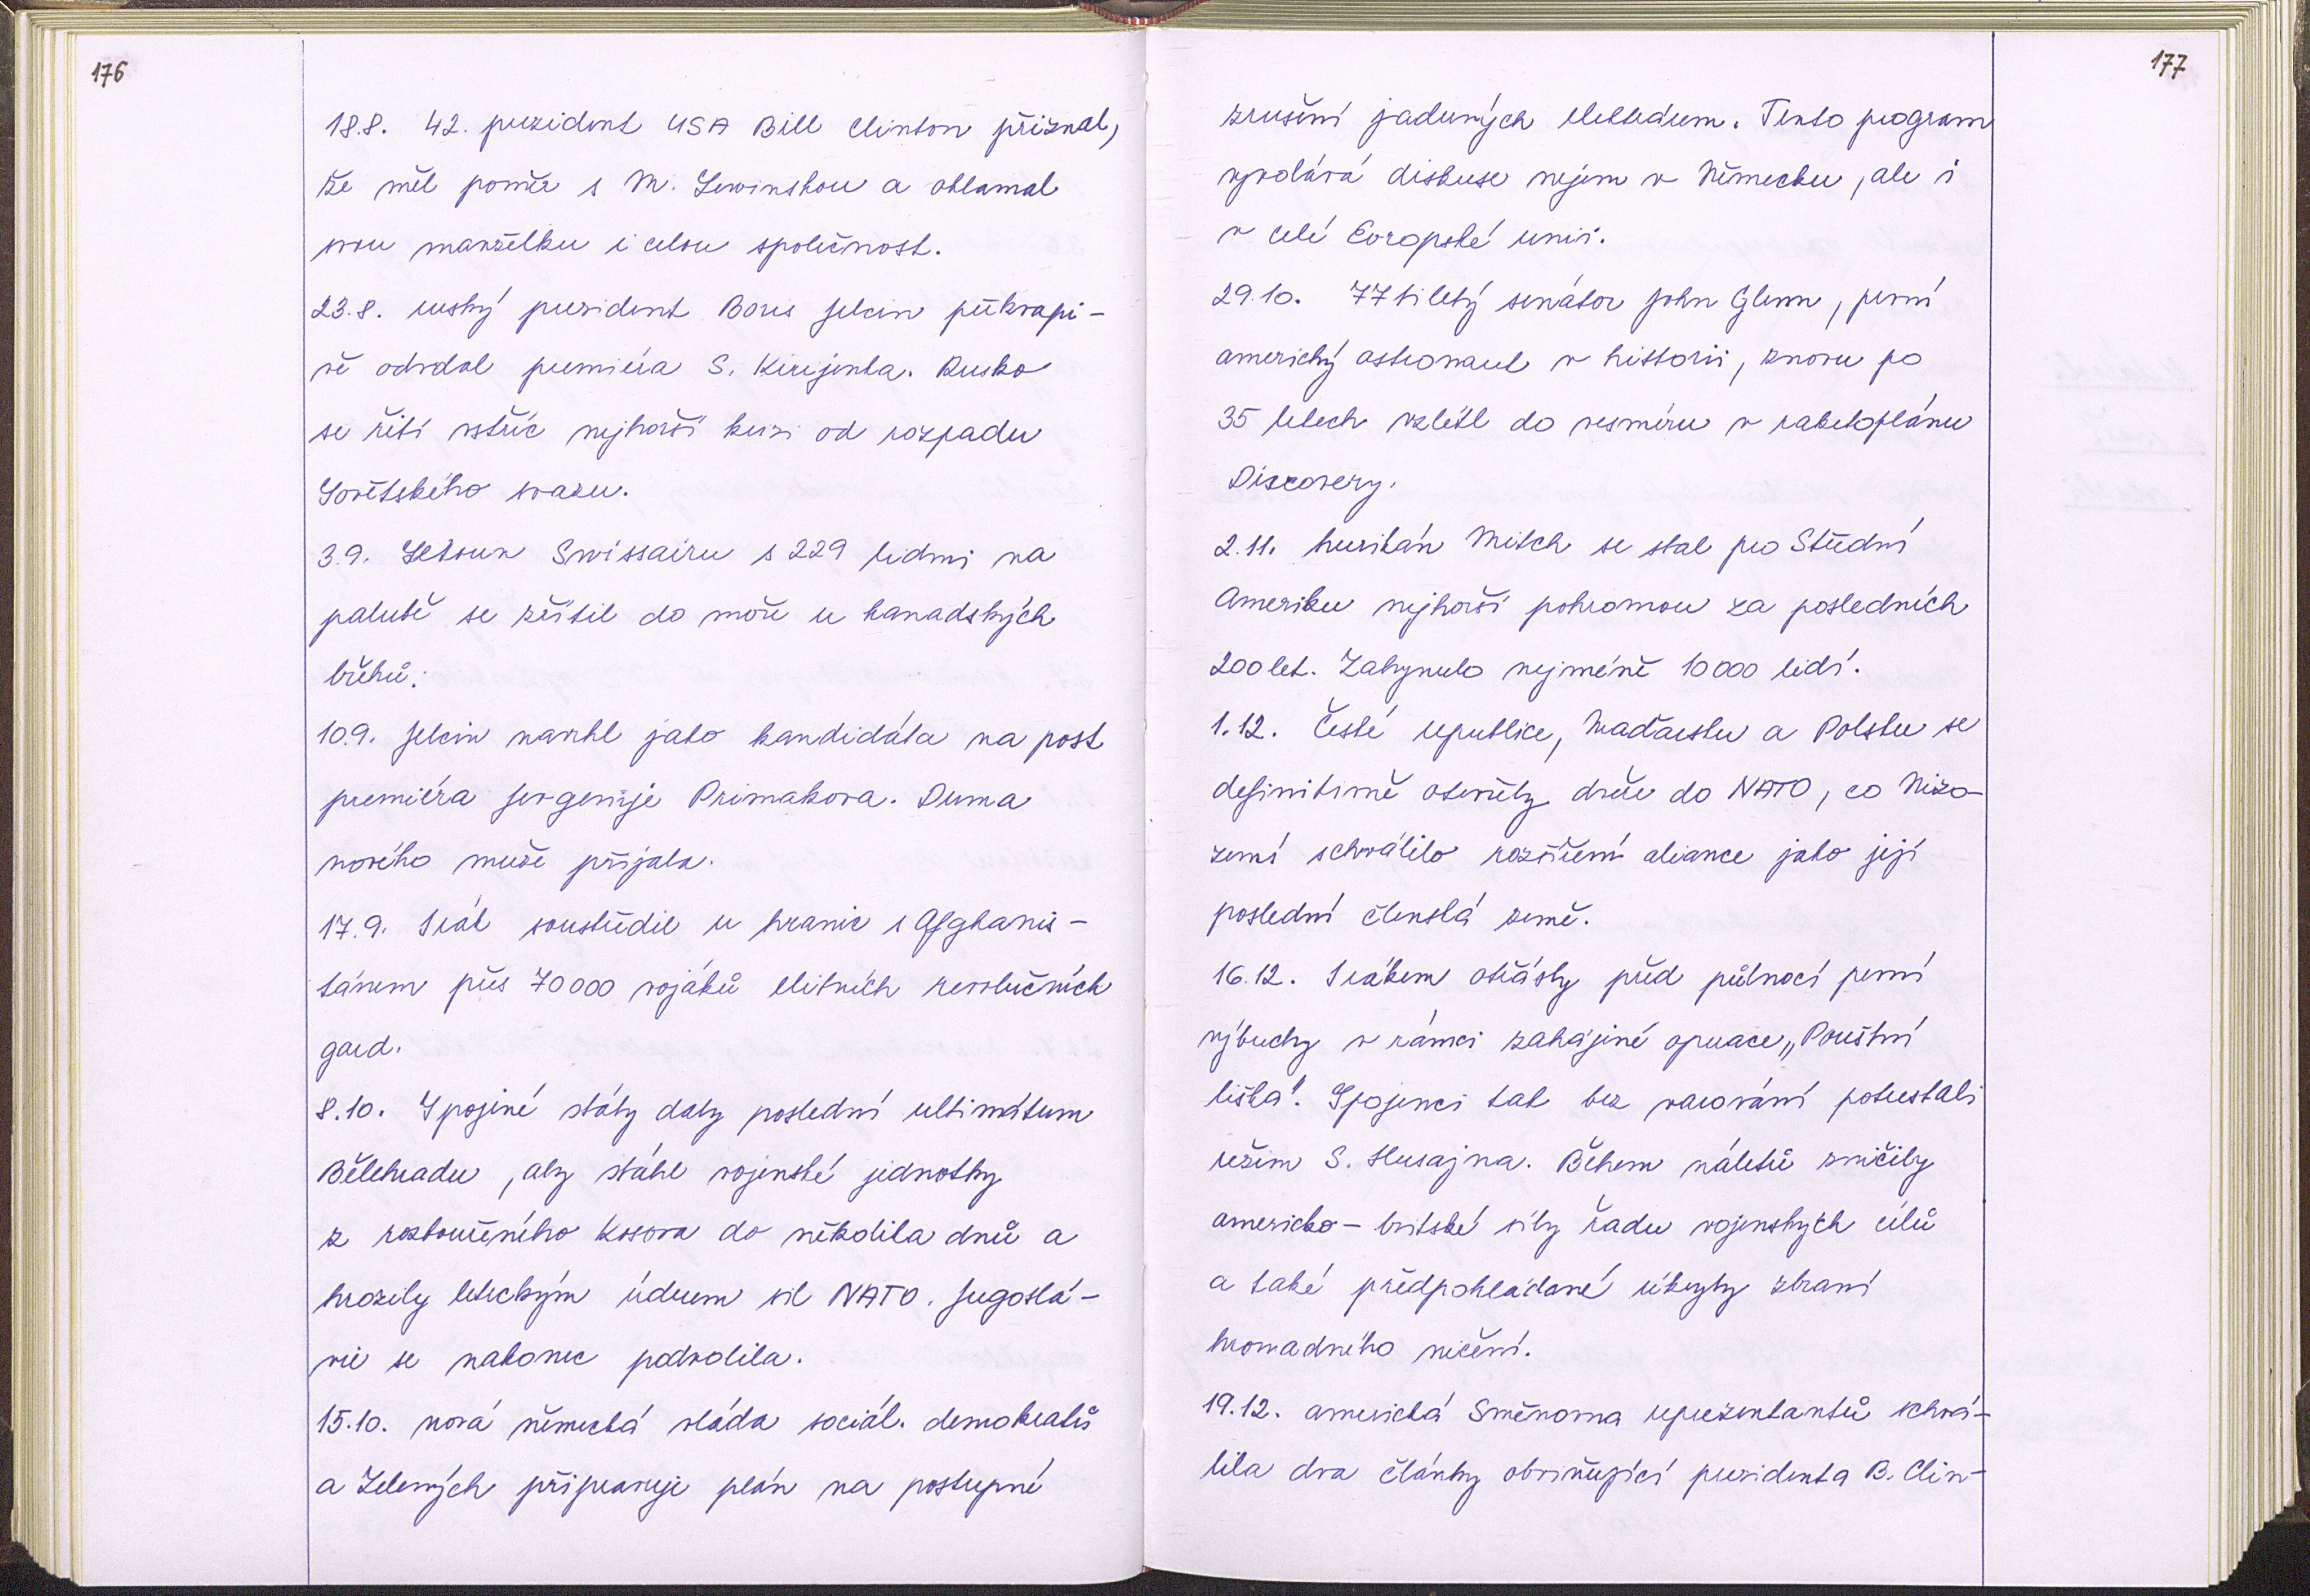 176
18.8. 42. prezident USA Bill Clinton přiznal,
že měl poměr s M. Lewinskou a oklamal
svou manželku i celou společnost.
23.8. ruský prezident Boris Jelcin překvapi-
vě odvolal premiéra S. Kirijenka. Rusko
se řítí vstříc nejhorší krizi od rozpadu
Sovětského svazu.
3.9. Letoun Swissairu s 229 lidmi na
palubě se zřítil do moře u kanadských
břehů.
10.9. Jelcin navrhl jako kandidáta na post
premiéra Jevgenije Primakova. Duma
nového muže přijala.
17.9. Irák soustředil u hranic s Afghanis-
tánem přes 70 000 vojáků elitních revolučních
gard.
8.10. Spojené státy daly poslední ultimátum
Bělehradu, aby stáhl vojenské jednotky
z rozbouřeného Kosova do několika dnů a
hrozily leteckým úderem sil NATO. Jugoslá-
vie se nakonec podvolila.
15.10. nová německá vláda sociál. demokratů
a Zelených připravuje plán na postupné
177
zrušení jaderných elektráren. Tento program
vyvolává diskuse nejen v Německu, ale i
v celé Evropské unii.
29.10. 77 tiletý senátor John Glenn, první
americký astronaut v historii, znovu po
35 letech vzlétl do vesmíru v raketoplánu
Discovery.
2.11. hurikán Mitch se stal pro Střední
Ameriku nejhorší pohromou za posledních
200 let. Zahynulo nejméně 10 000 lidí.
1.12. České republice, Maďarsku a Polsku se
definitivně otevřely dveře do NATO, co Nizo-
zemí schválilo rozšíření aliance jako její
poslední členská země.
16.12. Irákem otřásly před půlnocí první
výbuchy v rámci zahájené operace „Pouštní
liška". Spojenci tak bez varování potrestali
režim S. Husajna. Během náletů zničily
americko-britské síly řadu vojenských cílů
a také předpokládané úkryty zbraní
hromadného ničení.
19.12. americká Sněmovna reprezentantů schvá-
lila dva články obviňující prezidenta B. Clin-